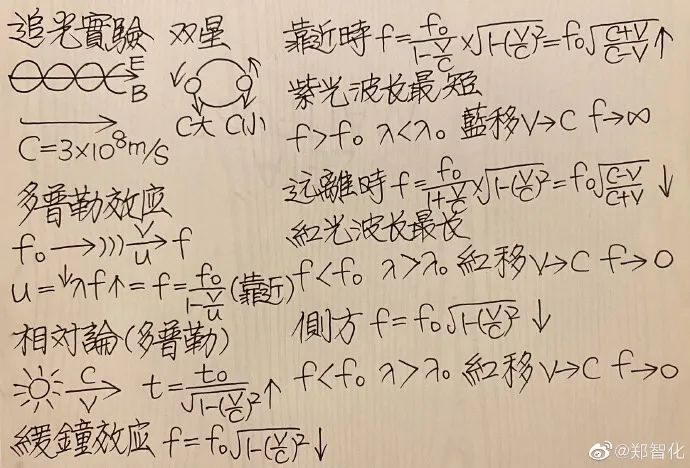 追光實驗 双星
E
B
V
C大 C小
C=3×10⁸m/s
多普勒效应
f₀→)))V/u→f
u=↓λf↑=f=f₀/(1-V/u)(靠近)
相对論(多普勒)
C/V→ t=t₀/√(1-(V/C)²)↑
緩鐘效应 f=f₀√(1-(V/C)²)↓
靠近時 f=f₀/(1-V/C)×√(1-(V/C)²)=f₀√((C+V)/(C-V))↑
紫光波长最短
f>f₀ λ<λ₀ 藍移V→C f→∞
远離時 f=f₀/(1+V/C)×√(1-(V/C)²)=f₀√((C-V)/(C+V))↓
紅光波长最长
f<f₀ λ>λ₀ 紅移V→C f→0
側方 f=f₀√(1-(V/C)²)↓
f<f₀ λ>λ₀ 紅移V→C f→0
@郑智化